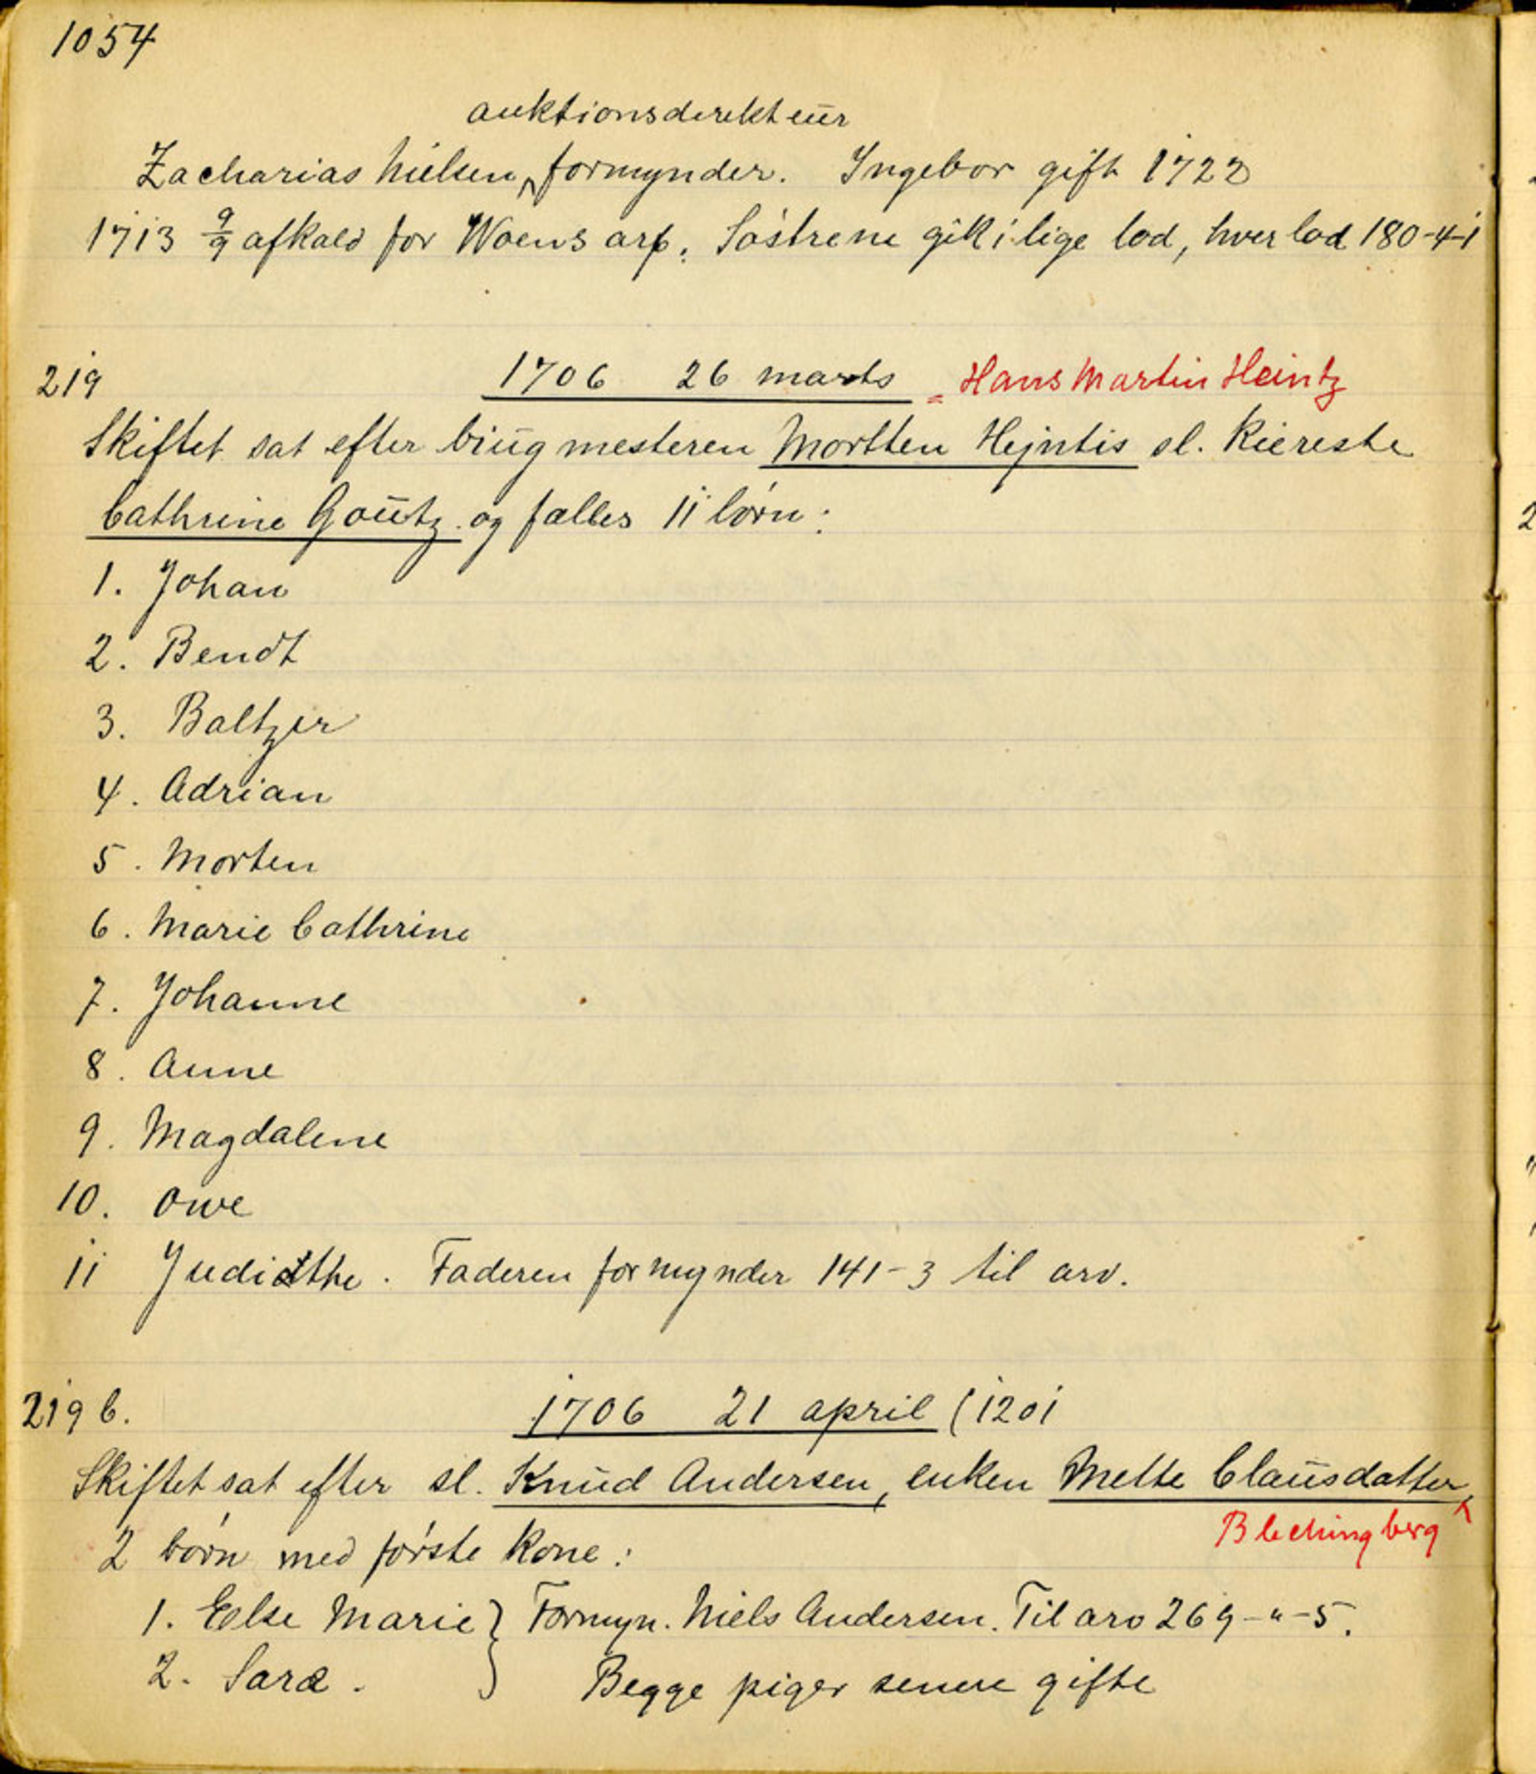 1054
auktionsdirekteur
Zacharias Nielsen, formynder. Ingebor gift 1722
1713 9/9 afkald for Woens arf. Søstrene gik i lige lod, hver lod 180-4-1
219 1706 26 marts = Hans Martin Heintz
Skiftet sat efter biugmesteren Mortten Hejntis sl. Kiereste
Cathrine Goutz og fælles 11 børn:
1. Johan
2. Bendt
3. Baltzer
4. Adrian
5. Morten
6. Marie Cathrine
7. Johanne
8. Anne
9. Magdalene
10. Owe
11 Judithe. Faderen formynder 141-3 til arv.
219 b. 1706 21 april (1201
Skiftet sat efter sl. Knud Andersen, enken Mette Clausdatter
Blechingberg
2 børn med første kone:
1. Else Marie } Formyn. Niels Andersen. Til arv 269-"-5.
2. Sara. Begge piger senere gifte